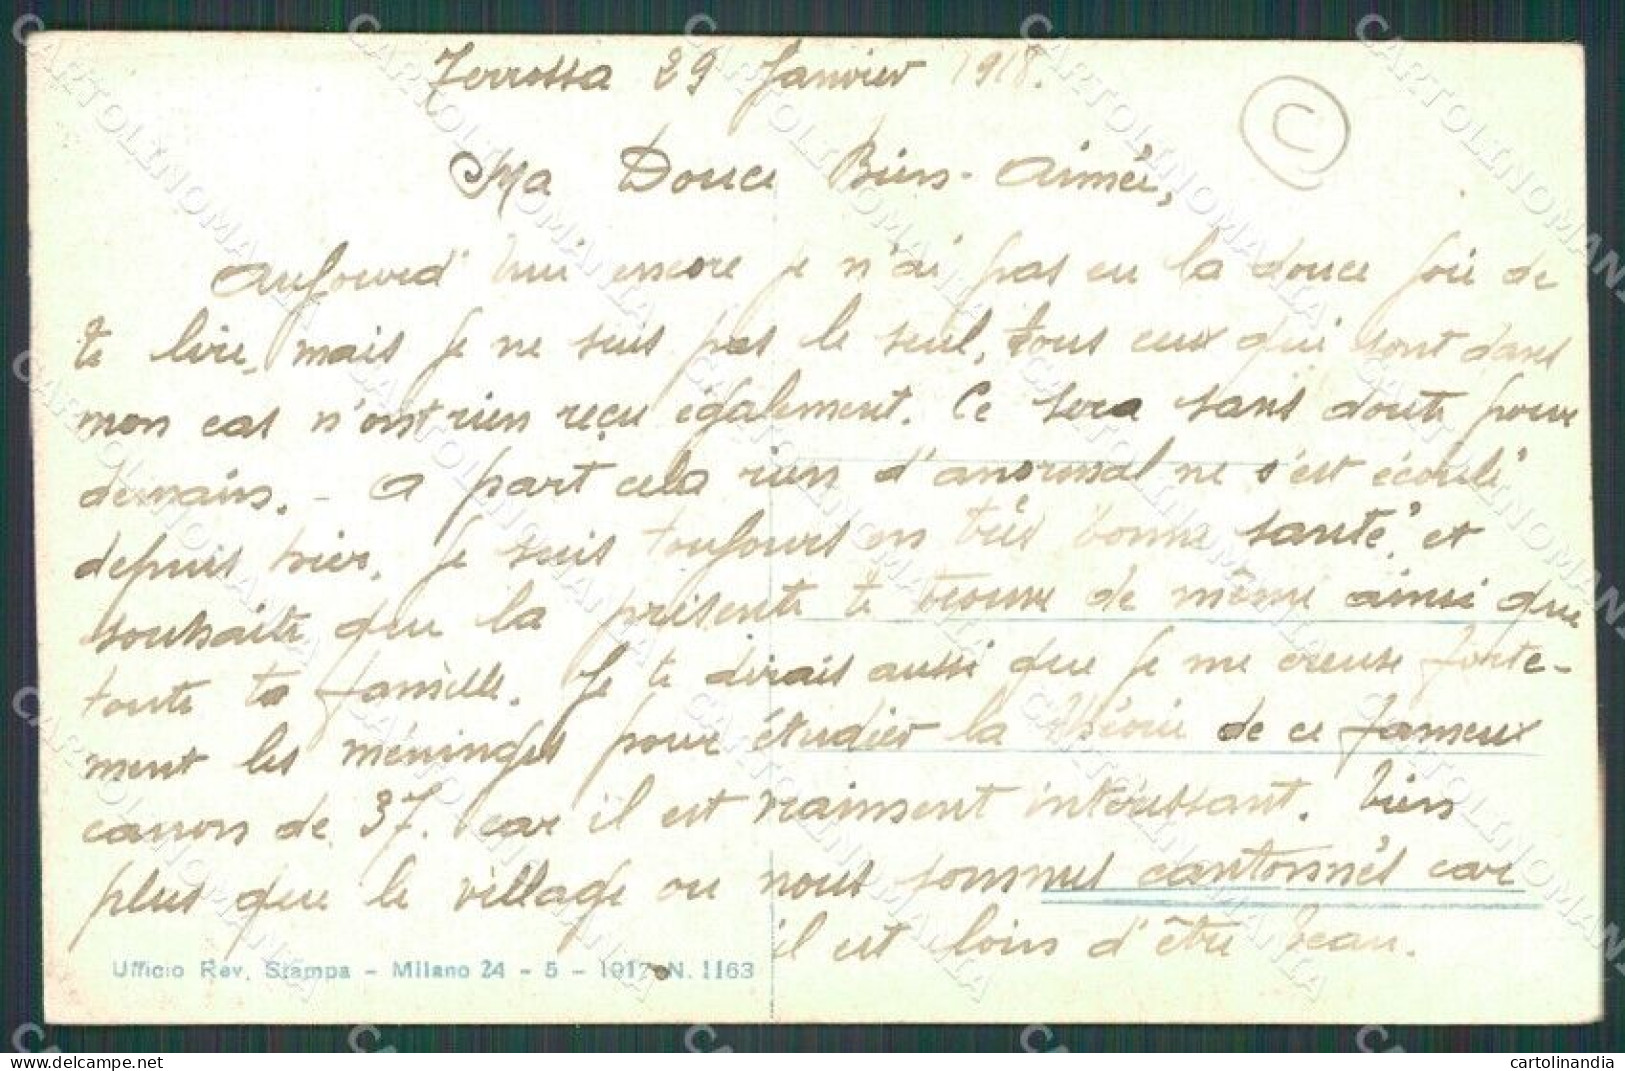 Terrossa 29 Janvier 1918.
C
Ma Douce Bien-Aimée,
Aujourd'hui encore je n'ai pas eu la douce joie de
te lire, mais je ne suis pas le seul, tous ceux qui sont dans
mon cas n'ont rien reçu également. Ce sera sans doute pour
demain. - A part cela rien d'anormal ne s'est écoulé
depuis hier. Je suis toujours en très bonne santé, et
souhaite que la présente te trouve de même ainsi que
toute ta famille. Je te dirais aussi que je me creuse forte-
ment les méninges pour étudier la théorie de ce fameux
canon de 37. car il est vraiment intéressant. bien
plus que le village ou nous sommes cantonnés car
il est loin d'être beau.
Ufficio Rev. Stampa - Milano 24 - 5 - 1917 N. 1163
CARTOLINOMANIA
cartolinandia
www.delcampe.net